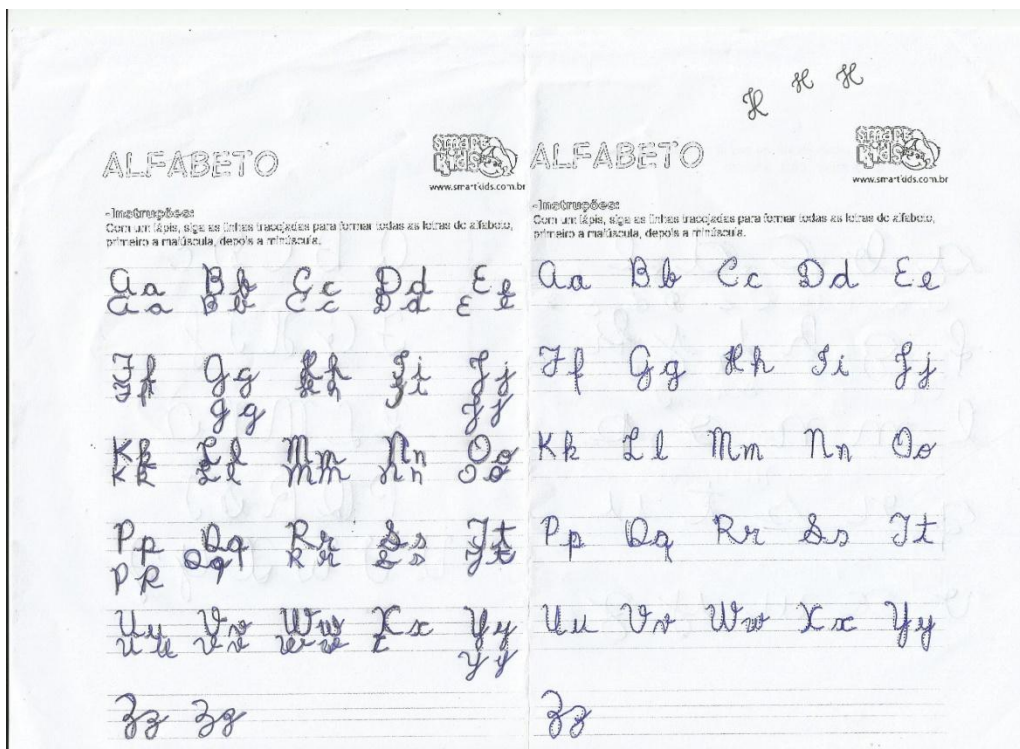 H H H
ALFABETO
smart kids
www.smartkids.com.br
-Instruções:
Com um lápis, siga as linhas tracejadas para formar todas as letras do alfabeto,
primeiro a maiúscula, depois a minúscula.
Aa Bb Cc Dd Ee
Aa Bb Cc Dd Ee
Ff Gg Hh Ii Jj
Ff Gg Hh Ii Jj
Kk Ll Mm Nn Oo
Kk Ll Mm Nn Oo
Pp Qq Rr Ss Tt
Qq Rr Ss Tt
Uu Vv Ww Xx Yy
Uu Vv Yy
Zz Zz
ALFABETO
smart kids
www.smartkids.com.br
-Instruções:
Com um lápis, siga as linhas tracejadas para formar todas as letras do alfabeto,
primeiro a maiúscula, depois a minúscula.
Aa Bb Cc Dd Ee
Ff Gg Hh Ii Jj
Kk Ll Mm Nn Oo
Pp Qq Rr Ss Tt
Uu Vv Ww Xx Yy
Zz